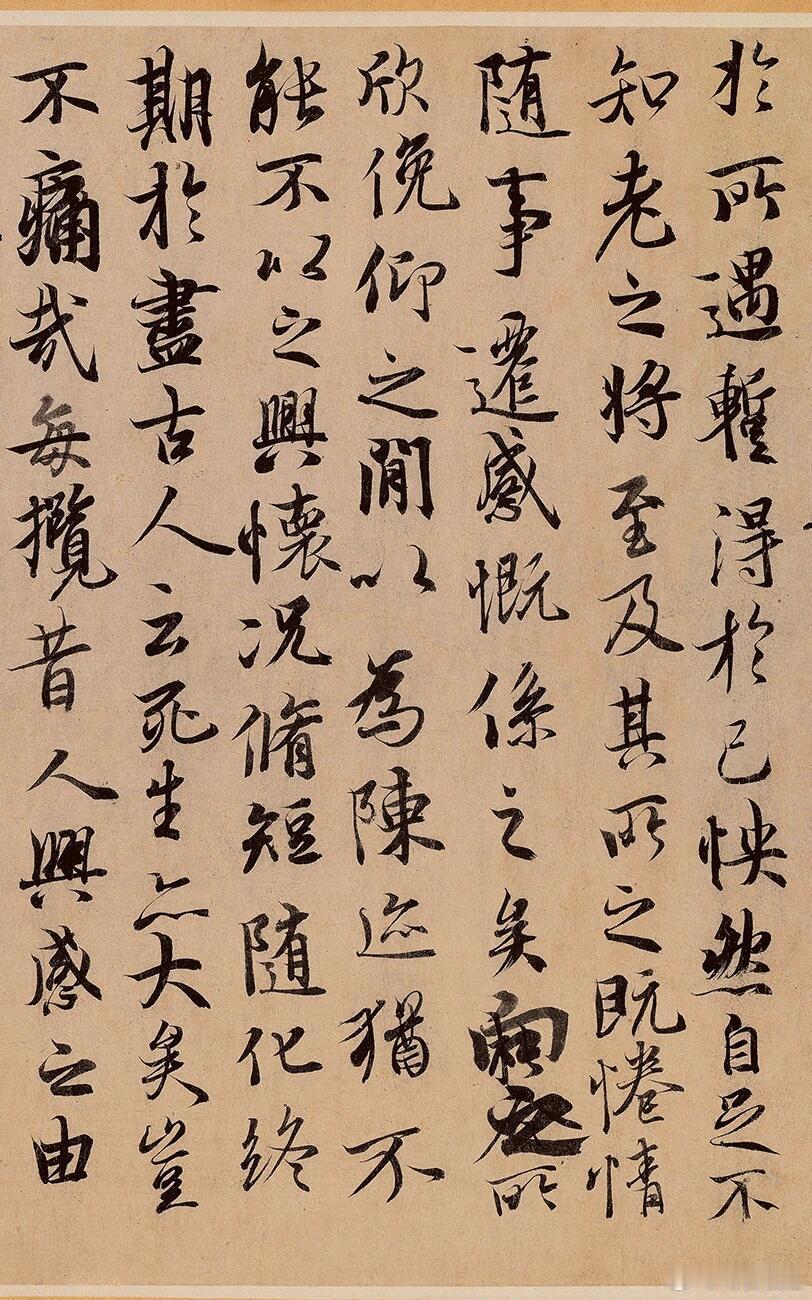 於所遇蹔得於己怏然自足不
知老之將至及其所之既惓情
随事遷感慨係之矣向之所
欣俛仰之閒以為陳迹猶不
能不以之興懷況脩短随化終
期於盡古人云死生亦大矣豈
不痛哉每攬昔人興感之由